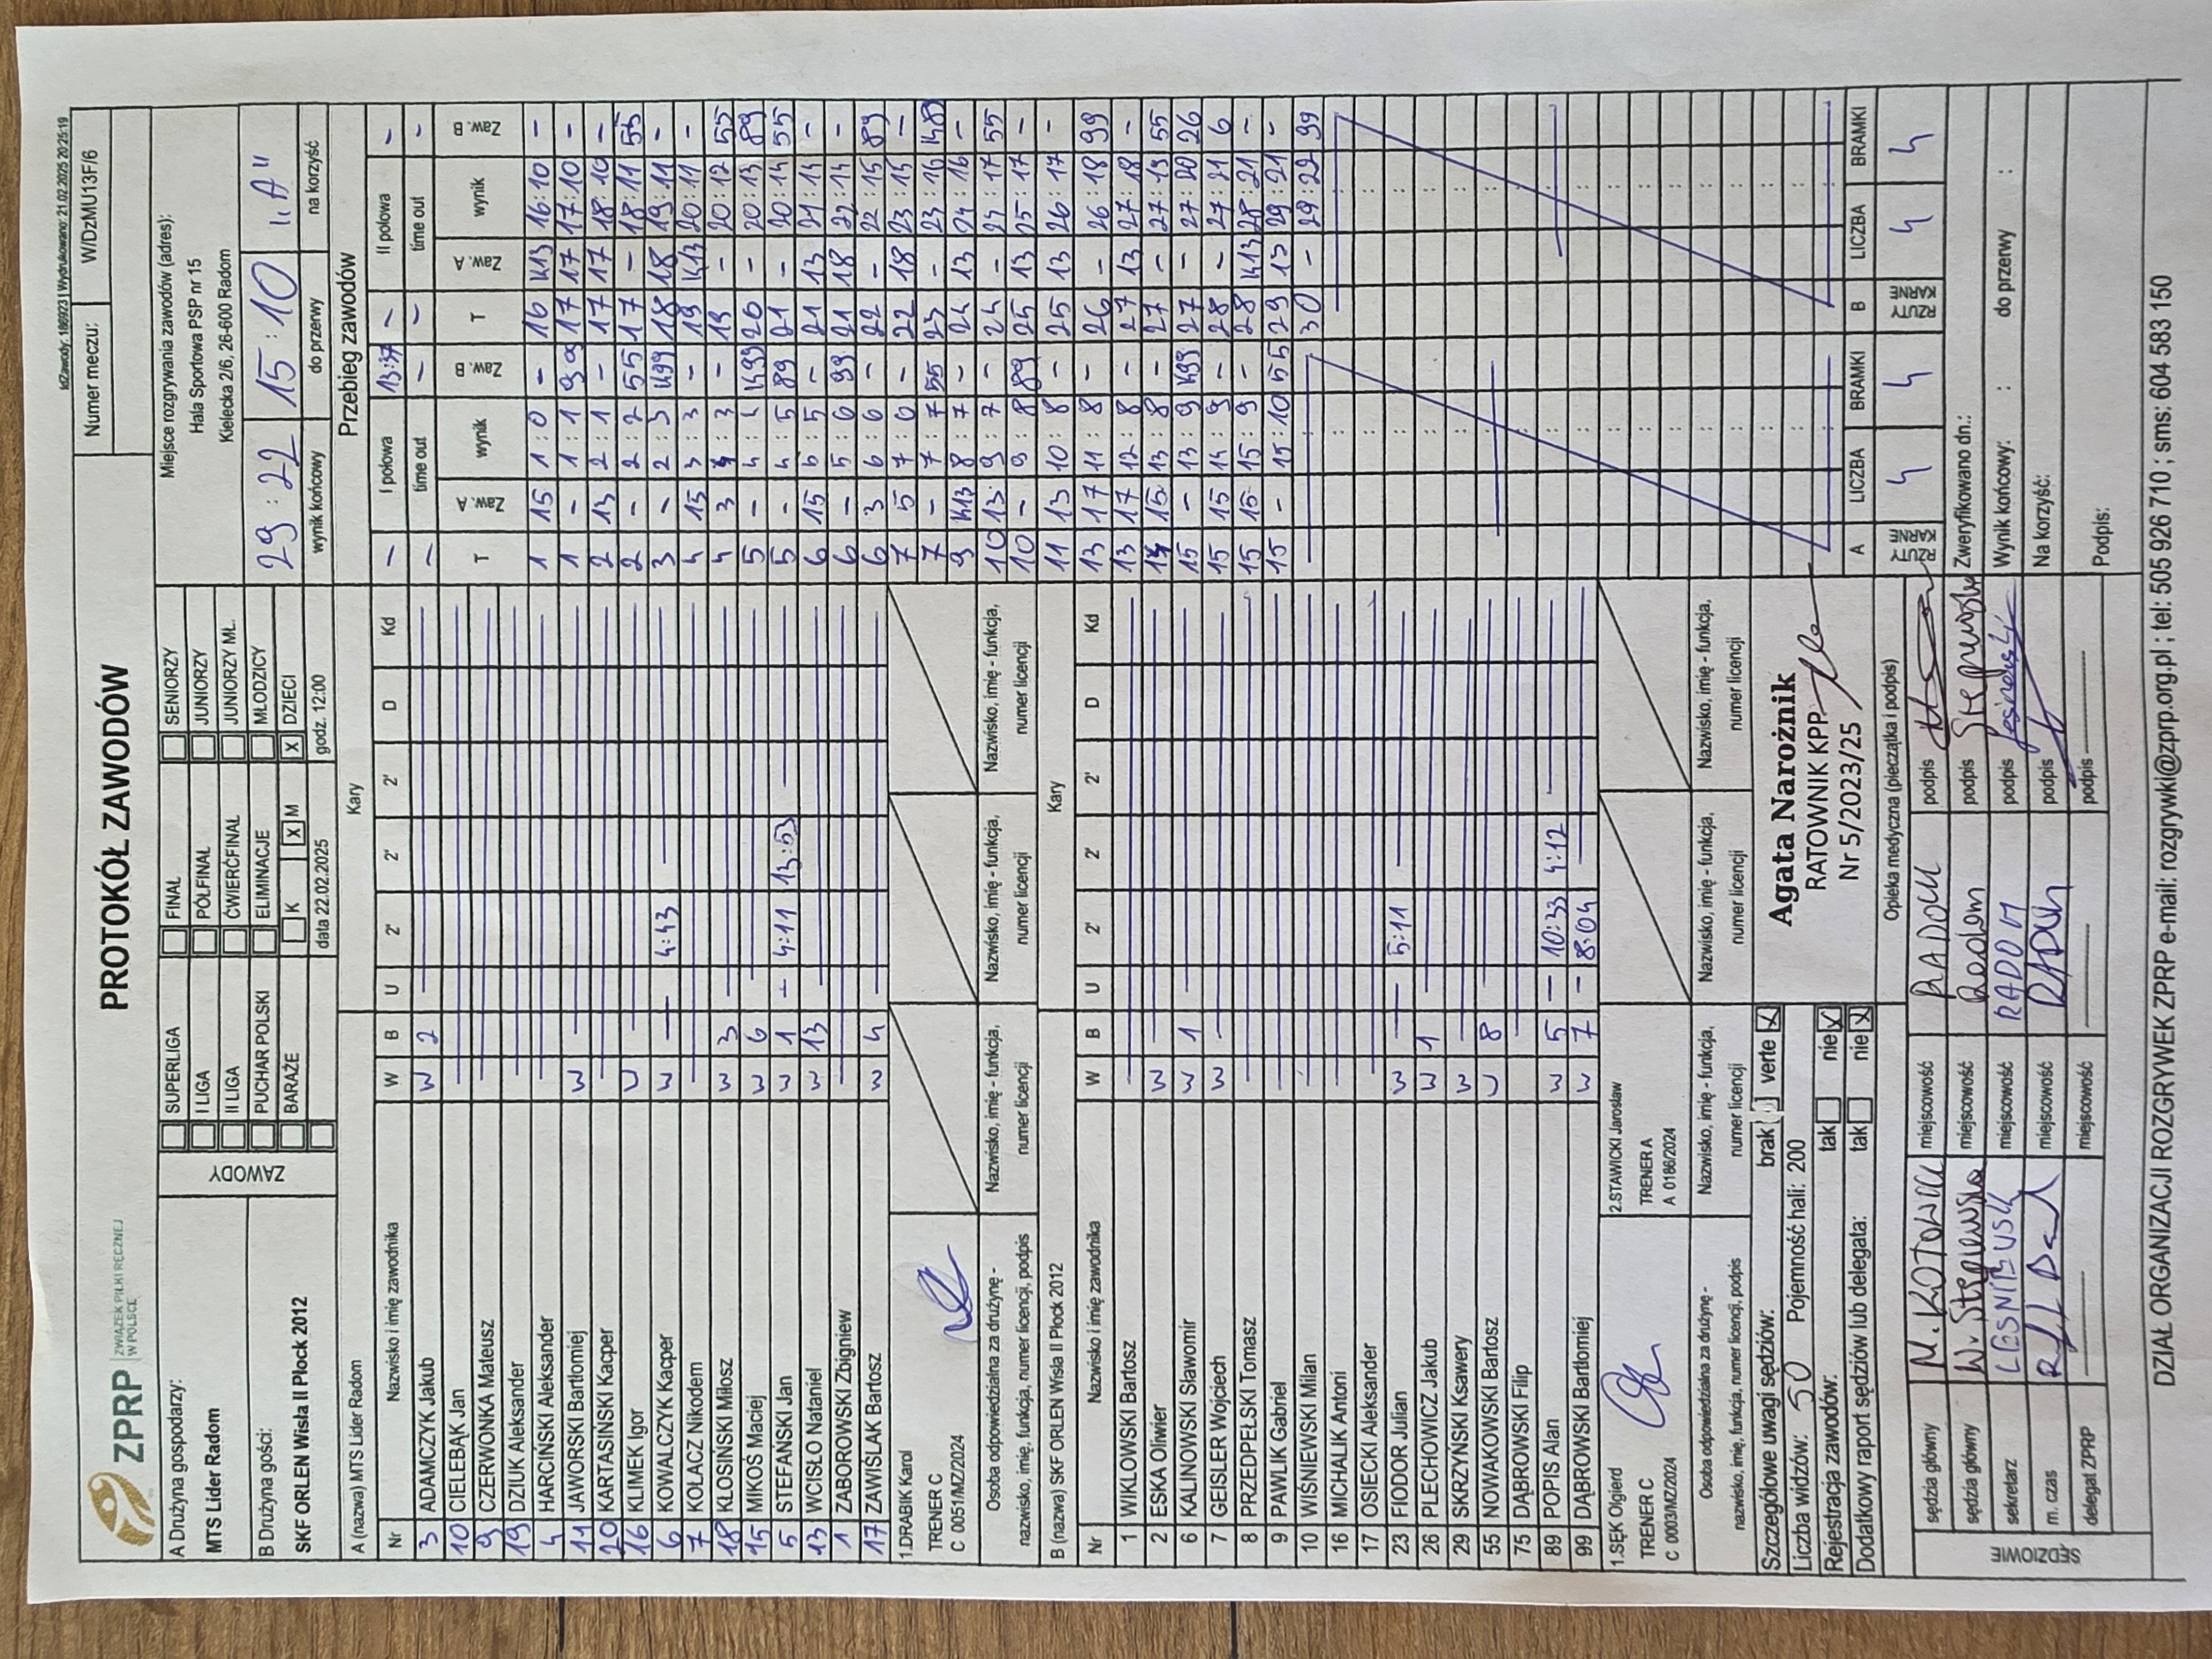 IdZawody: 186923 | Wydrukowano: 21.02.2025 20:25:19
ZPRP ZWIĄZEK PIŁKI RĘCZNEJ W POLSCE
PROTOKÓŁ ZAWODÓW
Numer meczu: W/DzMU13F/6
A Drużyna gospodarzy:
MTS Lider Radom
B Drużyna gości:
SKF ORLEN Wisła II Płock 2012
ZAWODY
SUPERLIGA FINAŁ SENIORZY
I LIGA PÓŁFINAŁ JUNIORZY
II LIGA ĆWIERĆFINAŁ JUNIORZY MŁ.
PUCHAR POLSKI ELIMINACJE MŁODZICY
BARAŻE K X M X DZIECI
data 22.02.2025 godz. 12:00
Miejsce rozgrywania zawodów (adres):
Hala Sportowa PSP nr 15
Kielecka 2/6, 26-600 Radom
29 : 22 15 : 10 "A"
wynik końcowy do przerwy na korzyść
A (nazwa) MTS Lider Radom Kary
Nr Nazwisko i imię zawodnika W B U 2' 2' 2' D Kd
3 ADAMCZYK Jakub W 2
10 CIELEBĄK Jan
9 CZERWONKA Mateusz
19 DZIUK Aleksander
4 HARCIŃSKI Aleksander
11 JAWORSKI Bartłomiej W
20 KARTASIŃSKI Kacper
16 KLIMEK Igor U
6 KOWALCZYK Kacper W 4:43
7 KOŁACZ Nikodem
18 KŁOSIŃSKI Miłosz W 3
15 MIKOŚ Maciej W 6
5 STEFAŃSKI Jan W 1 - 4:11 13:53
13 WCISŁO Nataniel W 13
1 ZABOROWSKI Zbigniew
17 ZAWIŚLAK Bartosz W 4
1.DRABIK Karol
TRENER C
C 0051/MZ/2024
Osoba odpowiedzialna za drużynę - nazwisko, imię, funkcja, numer licencji, podpis
Nazwisko, imię - funkcja, numer licencji
Nazwisko, imię - funkcja, numer licencji
Nazwisko, imię - funkcja, numer licencji
B (nazwa) SKF ORLEN Wisła II Płock 2012 Kary
Nr Nazwisko i imię zawodnika W B U 2' 2' 2' D Kd
1 WIKLOWSKI Bartosz
2 ESKA Oliwier W
6 KALINOWSKI Sławomir W 1
7 GEISLER Wojciech W
8 PRZEDPEŁSKI Tomasz
9 PAWLIK Gabriel
10 WIŚNIEWSKI Milan
16 MICHALIK Antoni
17 OSIECKI Aleksander
23 FIODOR Julian W 5:11
26 PLECHOWICZ Jakub W 1
29 SKRZYŃSKI Ksawery W
55 NOWAKOWSKI Bartosz U 8
75 DĄBROWSKI Filip
89 POPIS Alan W 5 - 10:33 4:12
99 DĄBROWSKI Bartłomiej W 7 - 8:04
1.SĘK Olgierd
TRENER C
C 0003/MZ/2024
2.STAWICKI Jarosław
TRENER A
A 0186/2024
Osoba odpowiedzialna za drużynę - nazwisko, imię, funkcja, numer licencji, podpis
Nazwisko, imię - funkcja, numer licencji
Nazwisko, imię - funkcja, numer licencji
Nazwisko, imię - funkcja, numer licencji
Szczegółowe uwagi sędziów: brak verte X
Liczba widzów: 50 Pojemność hali: 200
Rejestracja zawodów: tak nie X
Dodatkowy raport sędziów lub delegata: tak nie X
Agata Narożnik
RATOWNIK KPP
Nr 5/2023/25
Opieka medyczna (pieczątka i podpis)
SĘDZIOWIE
sędzia główny miejscowość RADOM podpis
sędzia główny W. Stępniewska miejscowość Radom podpis
sekretarz miejscowość RADOM podpis
m. czas miejscowość RADOM podpis
delegat ZPRP miejscowość podpis
Przebieg zawodów
I połowa 13:37 II połowa
time out time out
T Zaw. A wynik Zaw. B T Zaw. A wynik Zaw. B
1 15 1 : 0 - 16 K13 16:10 -
1 - 1 : 1 99 17 17 17:10 -
2 13 2 : 1 - 17 17 18:10 -
2 - 2 : 2 55 17 - 18:11 55
3 - 2 : 3 K99 18 18 19:11 -
4 15 3 : 3 - 19 K13 20:11 -
4 3 4 : 3 - 19 - 20:12 55
5 - 4 : 4 K99 20 - 20:13 89
5 - 4 : 5 89 21 - 20:14 55
6 15 5 : 5 - 21 13 21:14 -
6 - 5 : 6 99 21 18 22:14 -
6 3 6 : 6 - 22 - 22:15 89
7 5 7 : 6 - 22 18 23:15 -
7 - 7 : 7 55 23 - 23:16 K89
9 K13 8 : 7 - 24 13 24:16 -
10 13 9 : 7 - 24 - 24:17 55
10 - 9 : 8 89 25 13 25:17 -
11 13 10 : 8 - 25 13 26:17 -
13 17 11 : 8 - 26 - 26:18 99
13 17 12 : 8 - 27 13 27:18 -
14 15 13 : 8 - 27 - 27:19 55
15 - 13 : 9 K99 27 - 27:20 26
15 15 14 : 9 - 28 - 27:21 6
15 15 15 : 9 - 28 K13 28:21 -
15 - 15 : 10 55 29 13 29:21 -
30 - 29:22 99
A LICZBA BRAMKI B LICZBA BRAMKI
RZUTY KARNE 4 4 RZUTY KARNE 4 4
Zweryfikowano dn.:
Wynik końcowy: : do przerwy :
Na korzyść:
Podpis:
DZIAŁ ORGANIZACJI ROZGRYWEK ZPRP e-mail: rozgrywki@zprp.org.pl ; tel: 505 926 710 ; sms: 604 583 150